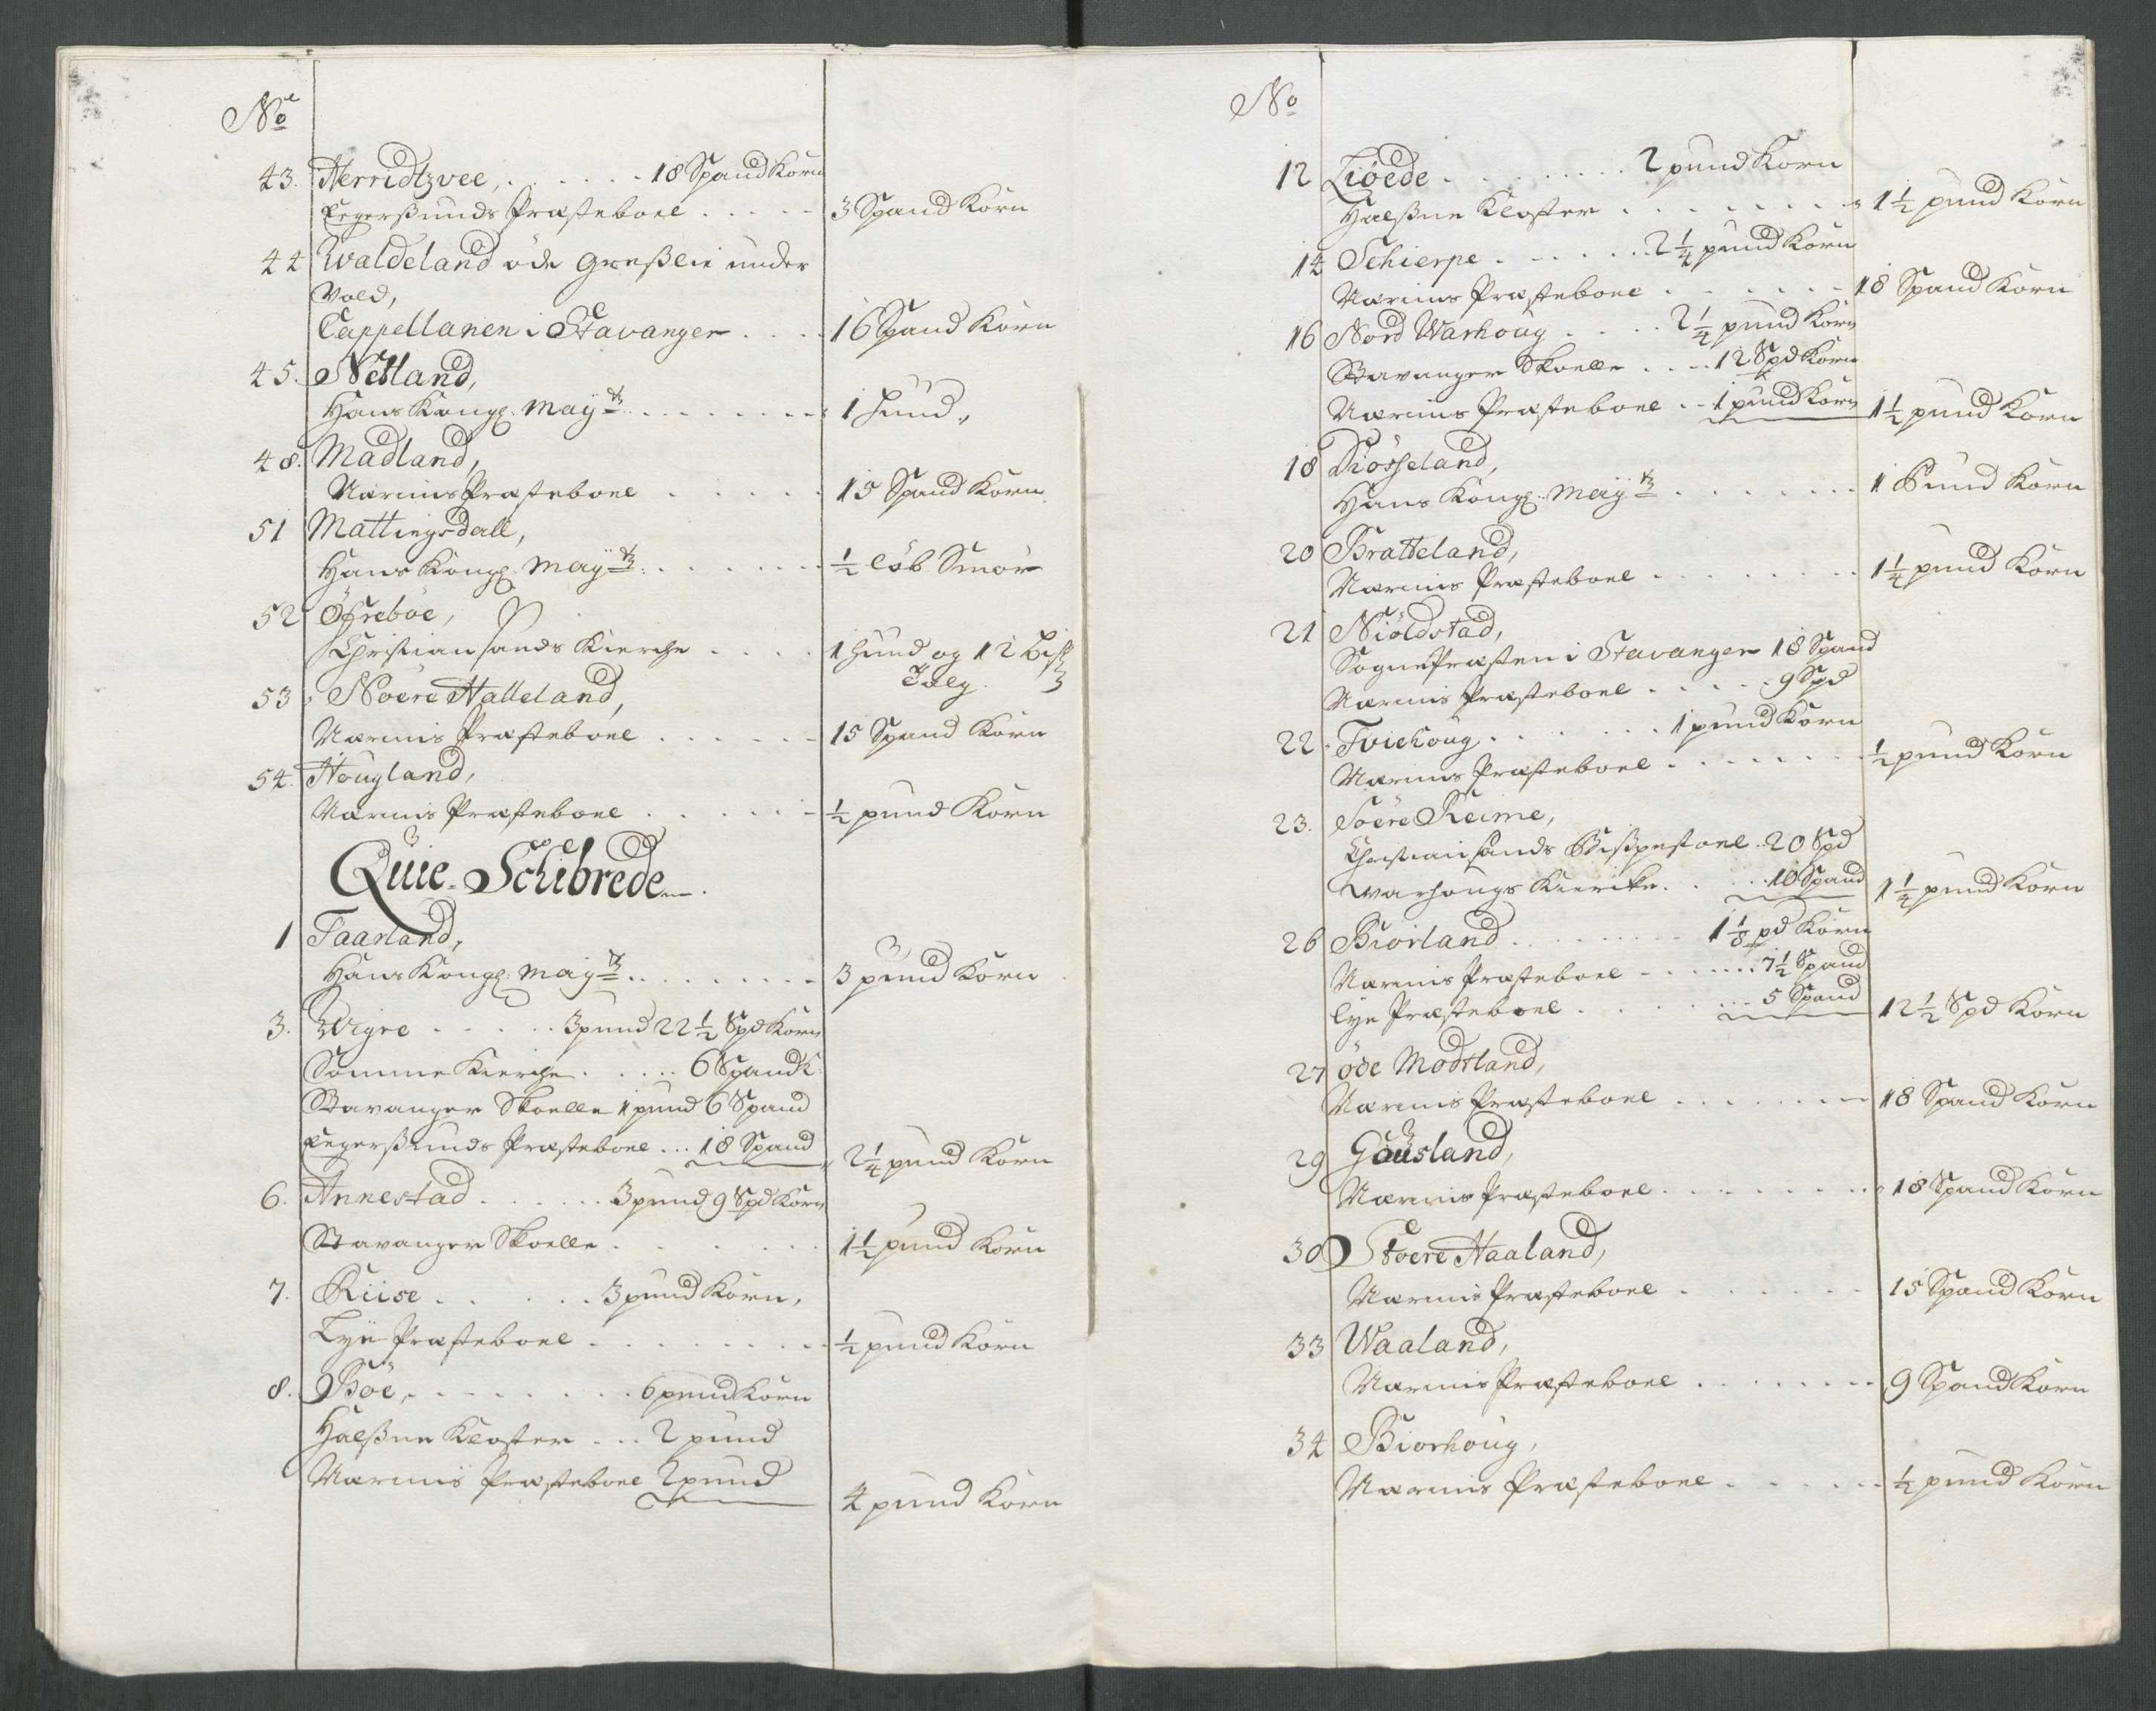 No
43. Herridtzvee, . . . . . . 18 Spand Korn
Eegersunds Præsteboel . . . . . 3 Spand Korn
44 Waldeland öde Greßlei under
Vold,
Cappellanen i Stavanger . . . . 16 Spand Korn
45. Netland,
Hans Kongl. Mayt. . . . . . . . 1 hund,
48. Madland,
Nærims Præsteboel . . . . . . 15 Spand Korn
51 Mattingsdall,
Hans Kongl. Mayt. . . . . . . ½ löb Smör
52 Öfreböe,
Christiansands Kierche . . . . 1 hund og 12
Talg.
53. Noere Halleland,
Nærims Præsteboel . . . . . . 15 Spand Korn
54. Hougland,
Nærims Præsteboel . . . . . . ½ pund Korn
Quie-Schibrede.
1 Taarland,
Hans Kongl. Mayt. . . . . . . . 3 pund Korn
3. Wigre . . . . . 3 pund 22½ Spd Korn
Somme Kierche . . . . . 6 Spand K.
Stavanger Skoelle 1 pund 6 Spand
Eegersunds Præsteboel ... 18 Spand 2¼ pund Korn
6. Annestad . . . . . . 3 pund 9 Spd Korn
Stavanger Skoelle . . . . . . 1½ pund Korn
7. Riise . . . . . . 3 pund Korn,
Lye Præsteboel . . . . . . . . ½ pund Korn
8. Böe, . . . . . . . . . 6 pund Korn
Halßne Kloster . . . 2 pund
Nærims Præsteboel 2 pund
4 pund Korn
No
12 Liöede . . . . . . . . . 2 pund Korn
Halßne Kloster . . . . . . . . 1½ pund Korn
14 Schierpe . . . . . . . 2¼ pund Korn
Nærims Præsteboel . . . . . . 18 Spand Korn
16 Nord Warhoug . . . . . 2¼ pund Korn
Stavanger Skoelle . . . . 12 Spd Korn
Nærims Præsteboel . . 1 pund Korn 1½ pund Korn
18 Diösseland,
Hans Kongl. Mayt. . . . . . . . 1 Pund Korn
20 Bratteland,
Nærims Præsteboel . . . . . . . 1¼ pund Korn
21 Niöldstad,
Sognepræsten i Stavanger 18 Spand
Nærims Præsteboel . . . . . 9 Spd
22. Tviehoug . . . . . . . 1 pund Korn
Nærims Præsteboel . . . . . . . ½ pund Korn
23. Söere Reime,
Christiansands Bißpestoel . 20 Spd
Warhougs Kiercke . . . . . 10 Spand 1¼ pund Korn
26 Biorland . . . . . . . . . 1⅛ pd Korn
Nærims Præsteboel . . . . . . 7½ Spand
Lye Præsteboel . . . . . . . 5 Spand 12½ Spd Korn
27 öde Modtland,
Nærims Præsteboel . . . . . . . 18 Spand Korn
29 Gousland,
Nærims Præsteboel . . . . . . . 18 Spand Korn
30 Stoere Haaland,
Nærims Præsteboel . . . . . . 15 Spand Korn
33 Waaland,
Nærims Præsteboel . . . . . . . 9 Spand Korn
34 Biorhoug,
Nærims Præsteboel . . . . . . ½ pund Korn